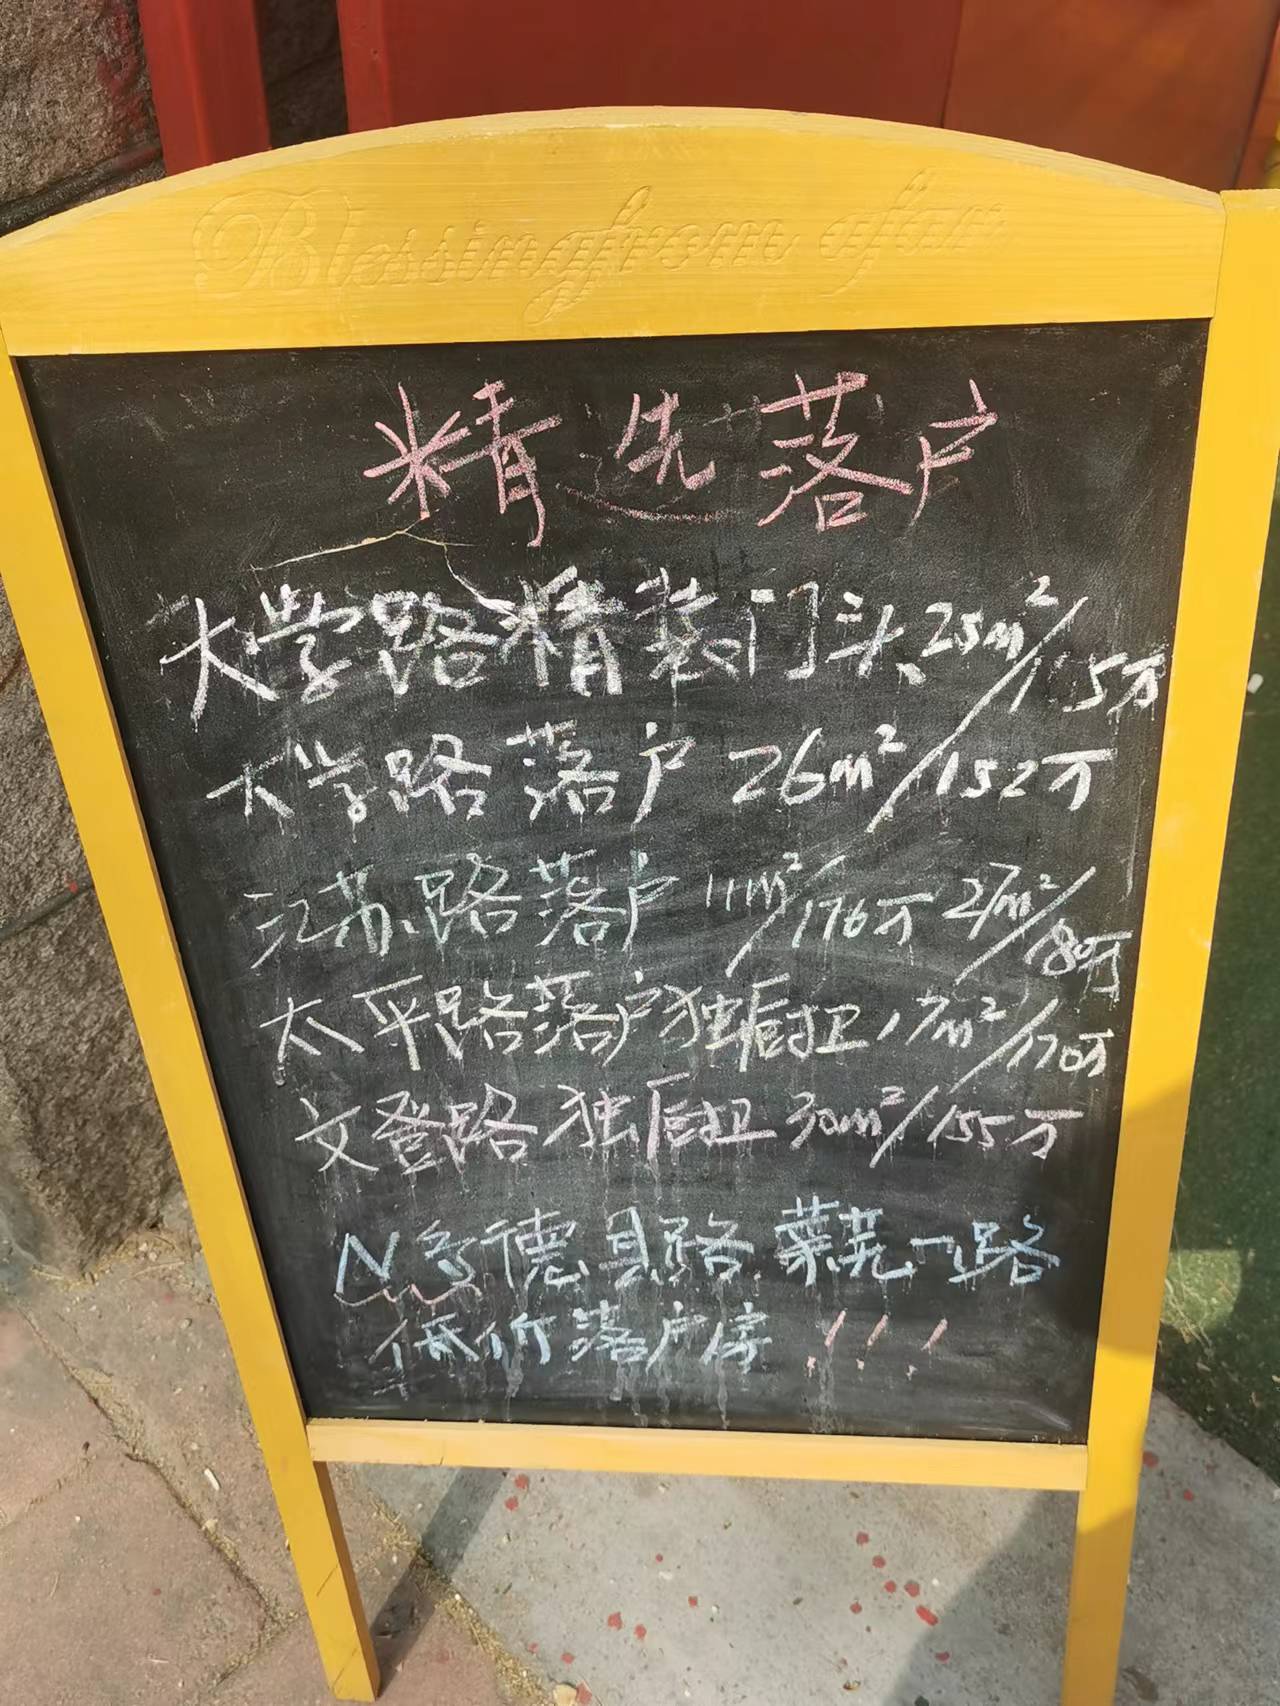 Blessingfrom afar
精选落户
大学路精装门头25m²/115万
大学路落户 26m²/152万
江苏路落户 11m²/176万 27m²/180万
太平路落户独厨卫17m²/170万
文登路 独厨卫 30m²/155万
德县路 莱芜一路
低价落户房!!!